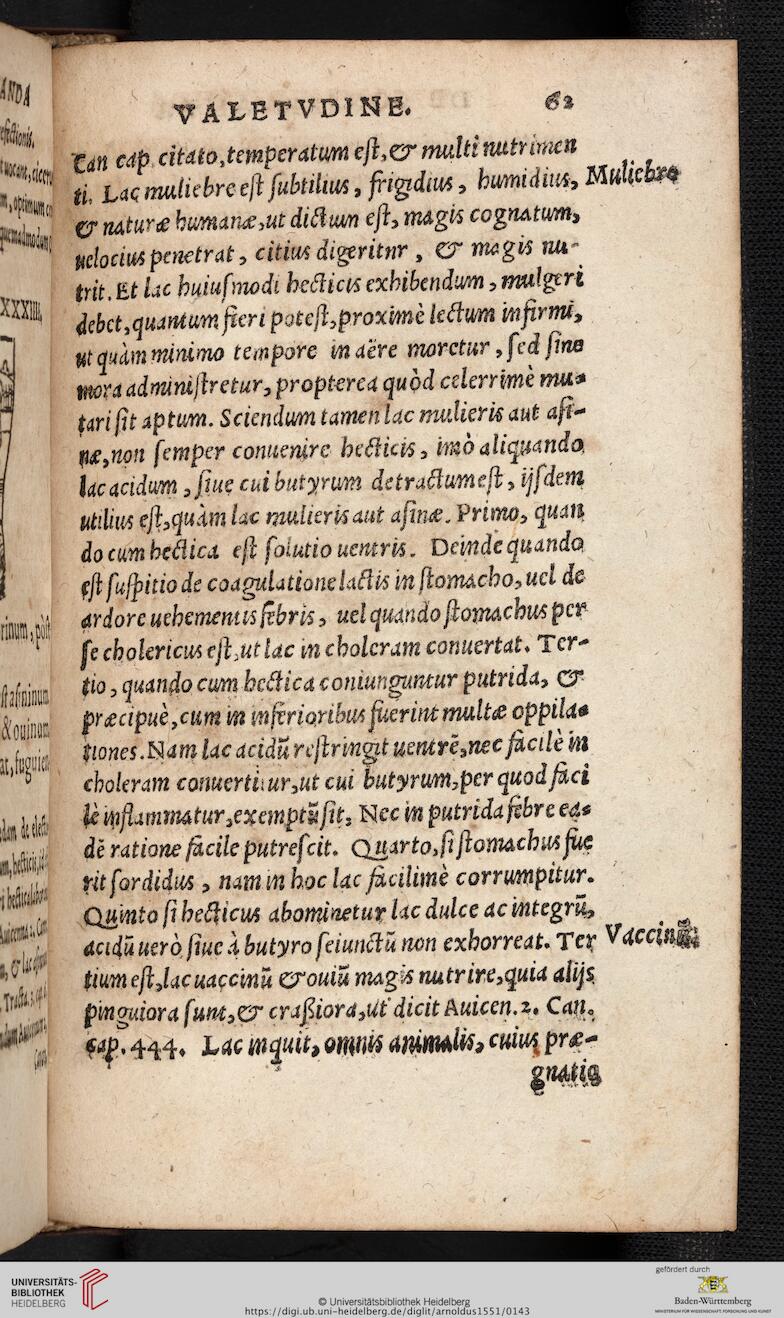 VALETVDINE. 62
Can cap. citato, temperatum est, & multi nutrimen
ti. Lac muliebre est subtilius, frigidius, humidius, Muliebre
& naturæ humanæ, ut dictum est, magis cognatum,
uelocius penetrat, citius digeritnr, & magis nu-
trit. Et lac huiusmodi hecticis exhibendum, mulgeri
debet, quantum fieri potest, proximè lectum infirmi,
ut quàm minimo tempore in aëre moretur, sed sine
mora administretur, propterea quòd celerrimè mu-
tari sit aptum. Sciendum tamen lac mulieris aut asi-
næ, non semper conuenire hecticis, imò aliquando
lac acidum, siue cui butyrum detractum est, ijsdem
utilius est, quàm lac mulieris aut asinæ. Primo, quan
do cum hectica est solutio uentris. Deinde quando
est suspitio de coagulatione lactis in stomacho, uel de
ardore uehementis febris, uel quando stomachus per
se cholericus est, ut lac in choleram conuertat. Ter-
tio, quando cum hectica coniunguntur putrida, &
præcipuè, cum in inferioribus fuerint multæ oppila-
tiones. Nam lac acidũ restringit uentrẽ, nec facilè in
choleram conuertitur, ut cui butyrum, per quod faci
lè inflammatur, exemptũ sit, Nec in putrida febre ea-
dẽ ratione facile putrescit. Quarto, si stomachus fue
rit sordidus, nam in hoc lac facilimè corrumpitur.
Quinto si hecticus abominetur lac dulce ac integrũ,
acidũ uerò siue à butyro seiunctũ non exhorreat. Ter Vaccinũ.
tium est, lac uaccinũ & ouiũ magis nutrire, quia alijs
pinguiora sunt, & craßiora, ut dicit Auicen. 2. Can.
cap. 444. Lac inquit, omnis animalis, cuius præ-
gnatio
ANDA
XXXIIII,
rinum, pòst
st asininum
& ouinum
at, fuguien
UNIVERSITÄTS-
BIBLIOTHEK
HEIDELBERG
© Universitätsbibliothek Heidelberg
https://digi.ub.uni-heidelberg.de/diglit/arnoldus1551/0143
gefördert durch
Baden-Württemberg
MINISTERIUM FÜR WISSENSCHAFT, FORSCHUNG UND KUNST